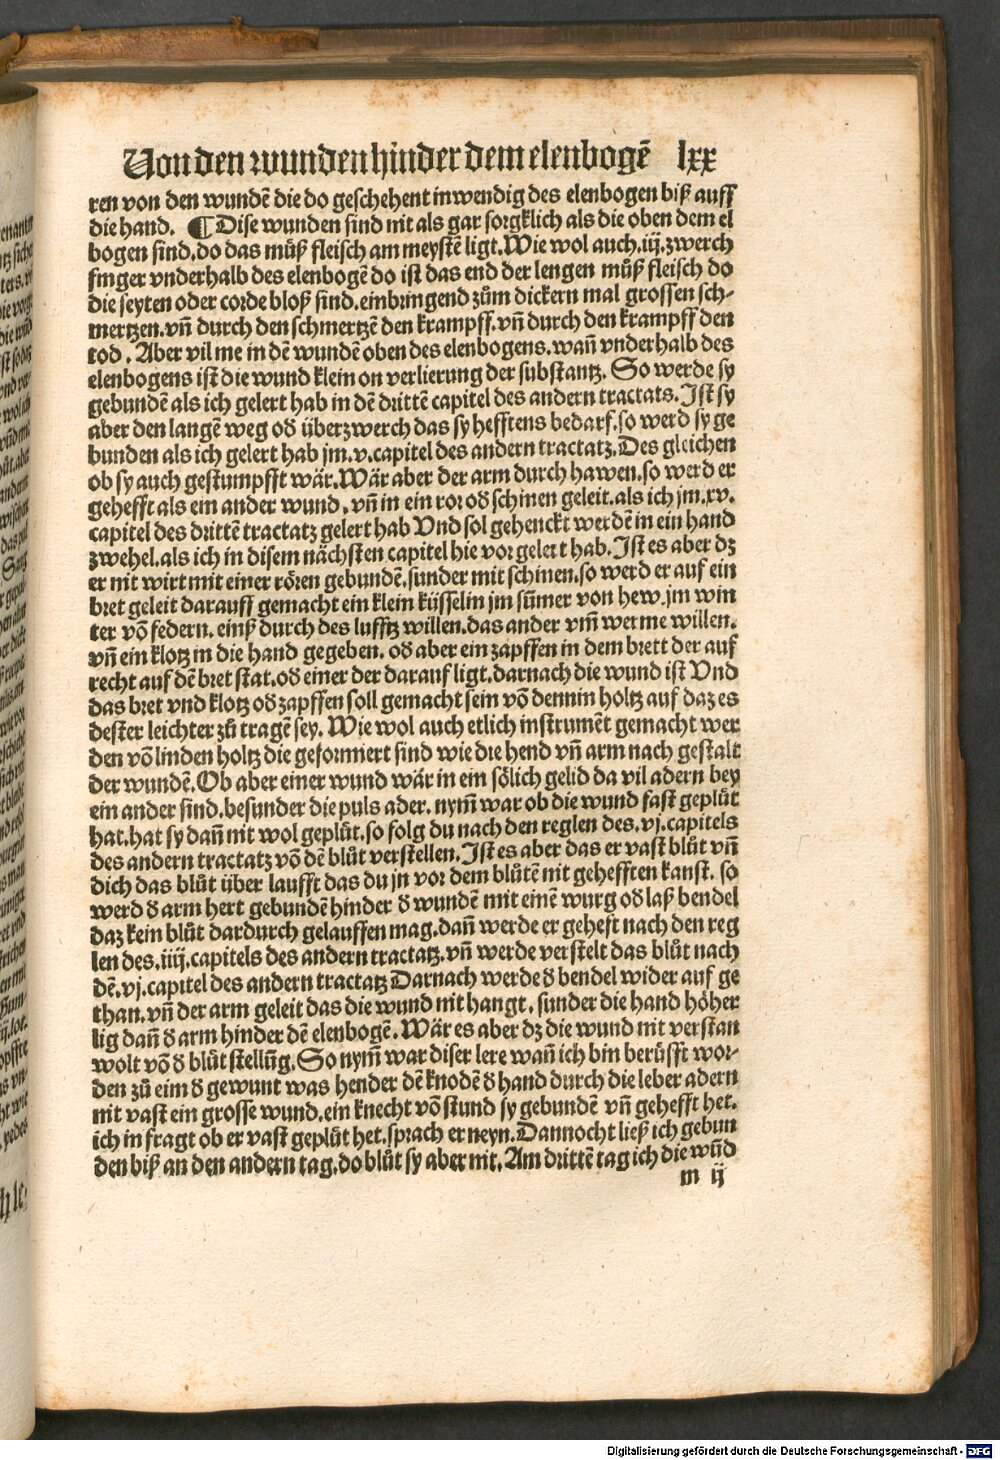 Von den wunden hinder dem elenbogē lxx
ren von den wundē die do geschehent inwendig des elenbogen biß auff
die hand. ¶ Dise wunden sind nit als gar sorgklich als die oben dem el
bogen sind. do das můß fleisch am meystē ligt. Wie wol auch .iij. zwerch
finger vnderhalb des elenbogē do ist das end der lengen můß fleisch do
die seyten oder corde bloß sind. einbringend zům dickern mal grossen sch-
mertzen. vn̄ durch den schmertzē den krampff. vn̄ durch den krampff den
tod. Aber vil me in dē wundē oben des elenbogens. wan̄ vnderhalb des
elenbogens ist die wund klein on verlierung der substantz. So werde sy
gebundē als ich gelert hab in dē drittē capitel des andern tractats. Ist sy
aber den langē weg oď überzwerch das sy hefftens bedarf. so werd sy ge
bunden als ich gelert hab jm .v. capitel des andern tractatz. Des gleichen
ob sy auch gestumpfft wär. Wär aber der arm durch hawen. so werd er
gehefft als ein ander wund. vn̄ in ein ror oď schinen geleit. als ich jm .xv.
capitel des drittē tractatz gelert hab Vnd sol gehenckt werdē in ein hand
zwehel. als ich in disem nächsten capitel hie vor gelert hab. Ist es aber dz
er nit wirt mit einer rören gebundē. sunder mit schinen. so werd er auf ein
bret geleit darauff gemacht ein klein küsselin jm sūmer von hew. jm win
ter vō federn. einß durch des luffts willen. das ander vm̄ werme willen.
vn̄ ein klotz in die hand gegeben. oď aber ein zapffen in dem brett der auf
recht auf dē bret stat. oď einer der darauf ligt. darnach die wund ist Vnd
das bret vnd klotz oď zapffen soll gemacht sein vō dennin holtz auf daz es
dester leichter zů tragē sey. Wie wol auch etlich instrumēt gemacht wer
den vō linden holtz die geformiert sind wie die hend vn̄ arm nach gestalt
der wundē. Ob aber einer wund wär in ein sölich gelid da vil adern bey
ein ander sind. besunder die puls ader. nym̄ war ob die wund fast geplůt
hat. hat sy dan̄ nit wol geplůt. so folg du nach den reglen des .vj. capitels
des andern tractatz vō dē blůt verstellen. Ist es aber das er vast blůt vn̄
dich das blůt über laufft das du jn vor dem blůtē nit gehefften kanst. so
werd ď arm hert gebundē hinder ď wundē mit einē wurg oď laß bendel
daz kein blůt dardurch gelauffen mag. dan̄ werde er geheft nach den reg
len des .iiij. capitels des andern tractatz. vn̄ werde verstelt das blůt nach
dē .vj. capitel des andern tractatz Darnach werde ď bendel wider auf ge
than. vn̄ der arm geleit das die wund nit hangt. sunder die hand höher
lig dan̄ ď arm hinder dē elenbogē. Wär es aber dz die wund nit verstan
wolt vō ď blůt stellūg. So nym̄ war diser lere wan̄ ich bin berůfft wor-
den zů eim ď gewunt was hender dē knodē ď hand durch die leber adern
nit vast ein grosse wund. ein knecht vō stund sy gebundē vn̄ gehefft het.
ich in fragt ob er vast geplůt het. sprach er neyn. Dannocht ließ ich gebun
den biß an den andern tag. do blůt sy aber nit. Am drittē tag ich die wūd
m ij
Digitalisierung gefördert durch die Deutsche Forschungsgemeinschaft - DFG